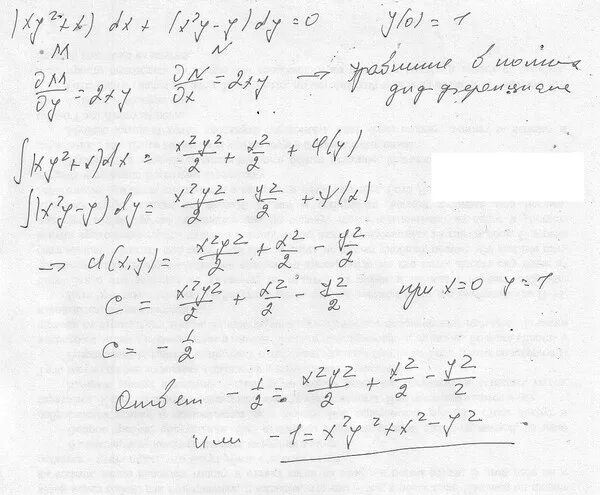 (xy²+x) dx + (x²y-y) dy = 0 y(0) = 1
M N
∂M/∂y = 2xy ∂N/∂x = 2xy → уравнение в полных
дифференциалах
∫(xy²+x)dx = x²y²/2 + x²/2 + φ(y)
∫(x²y-y)dy = x²y²/2 - y²/2 + ψ(x)
→ U(x,y) = x²y²/2 + x²/2 - y²/2
C = x²y²/2 + x²/2 - y²/2 при x=0 y=1
C = -1/2
Ответ -1/2 = x²y²/2 + x²/2 - y²/2
или -1 = x²y² + x² - y²